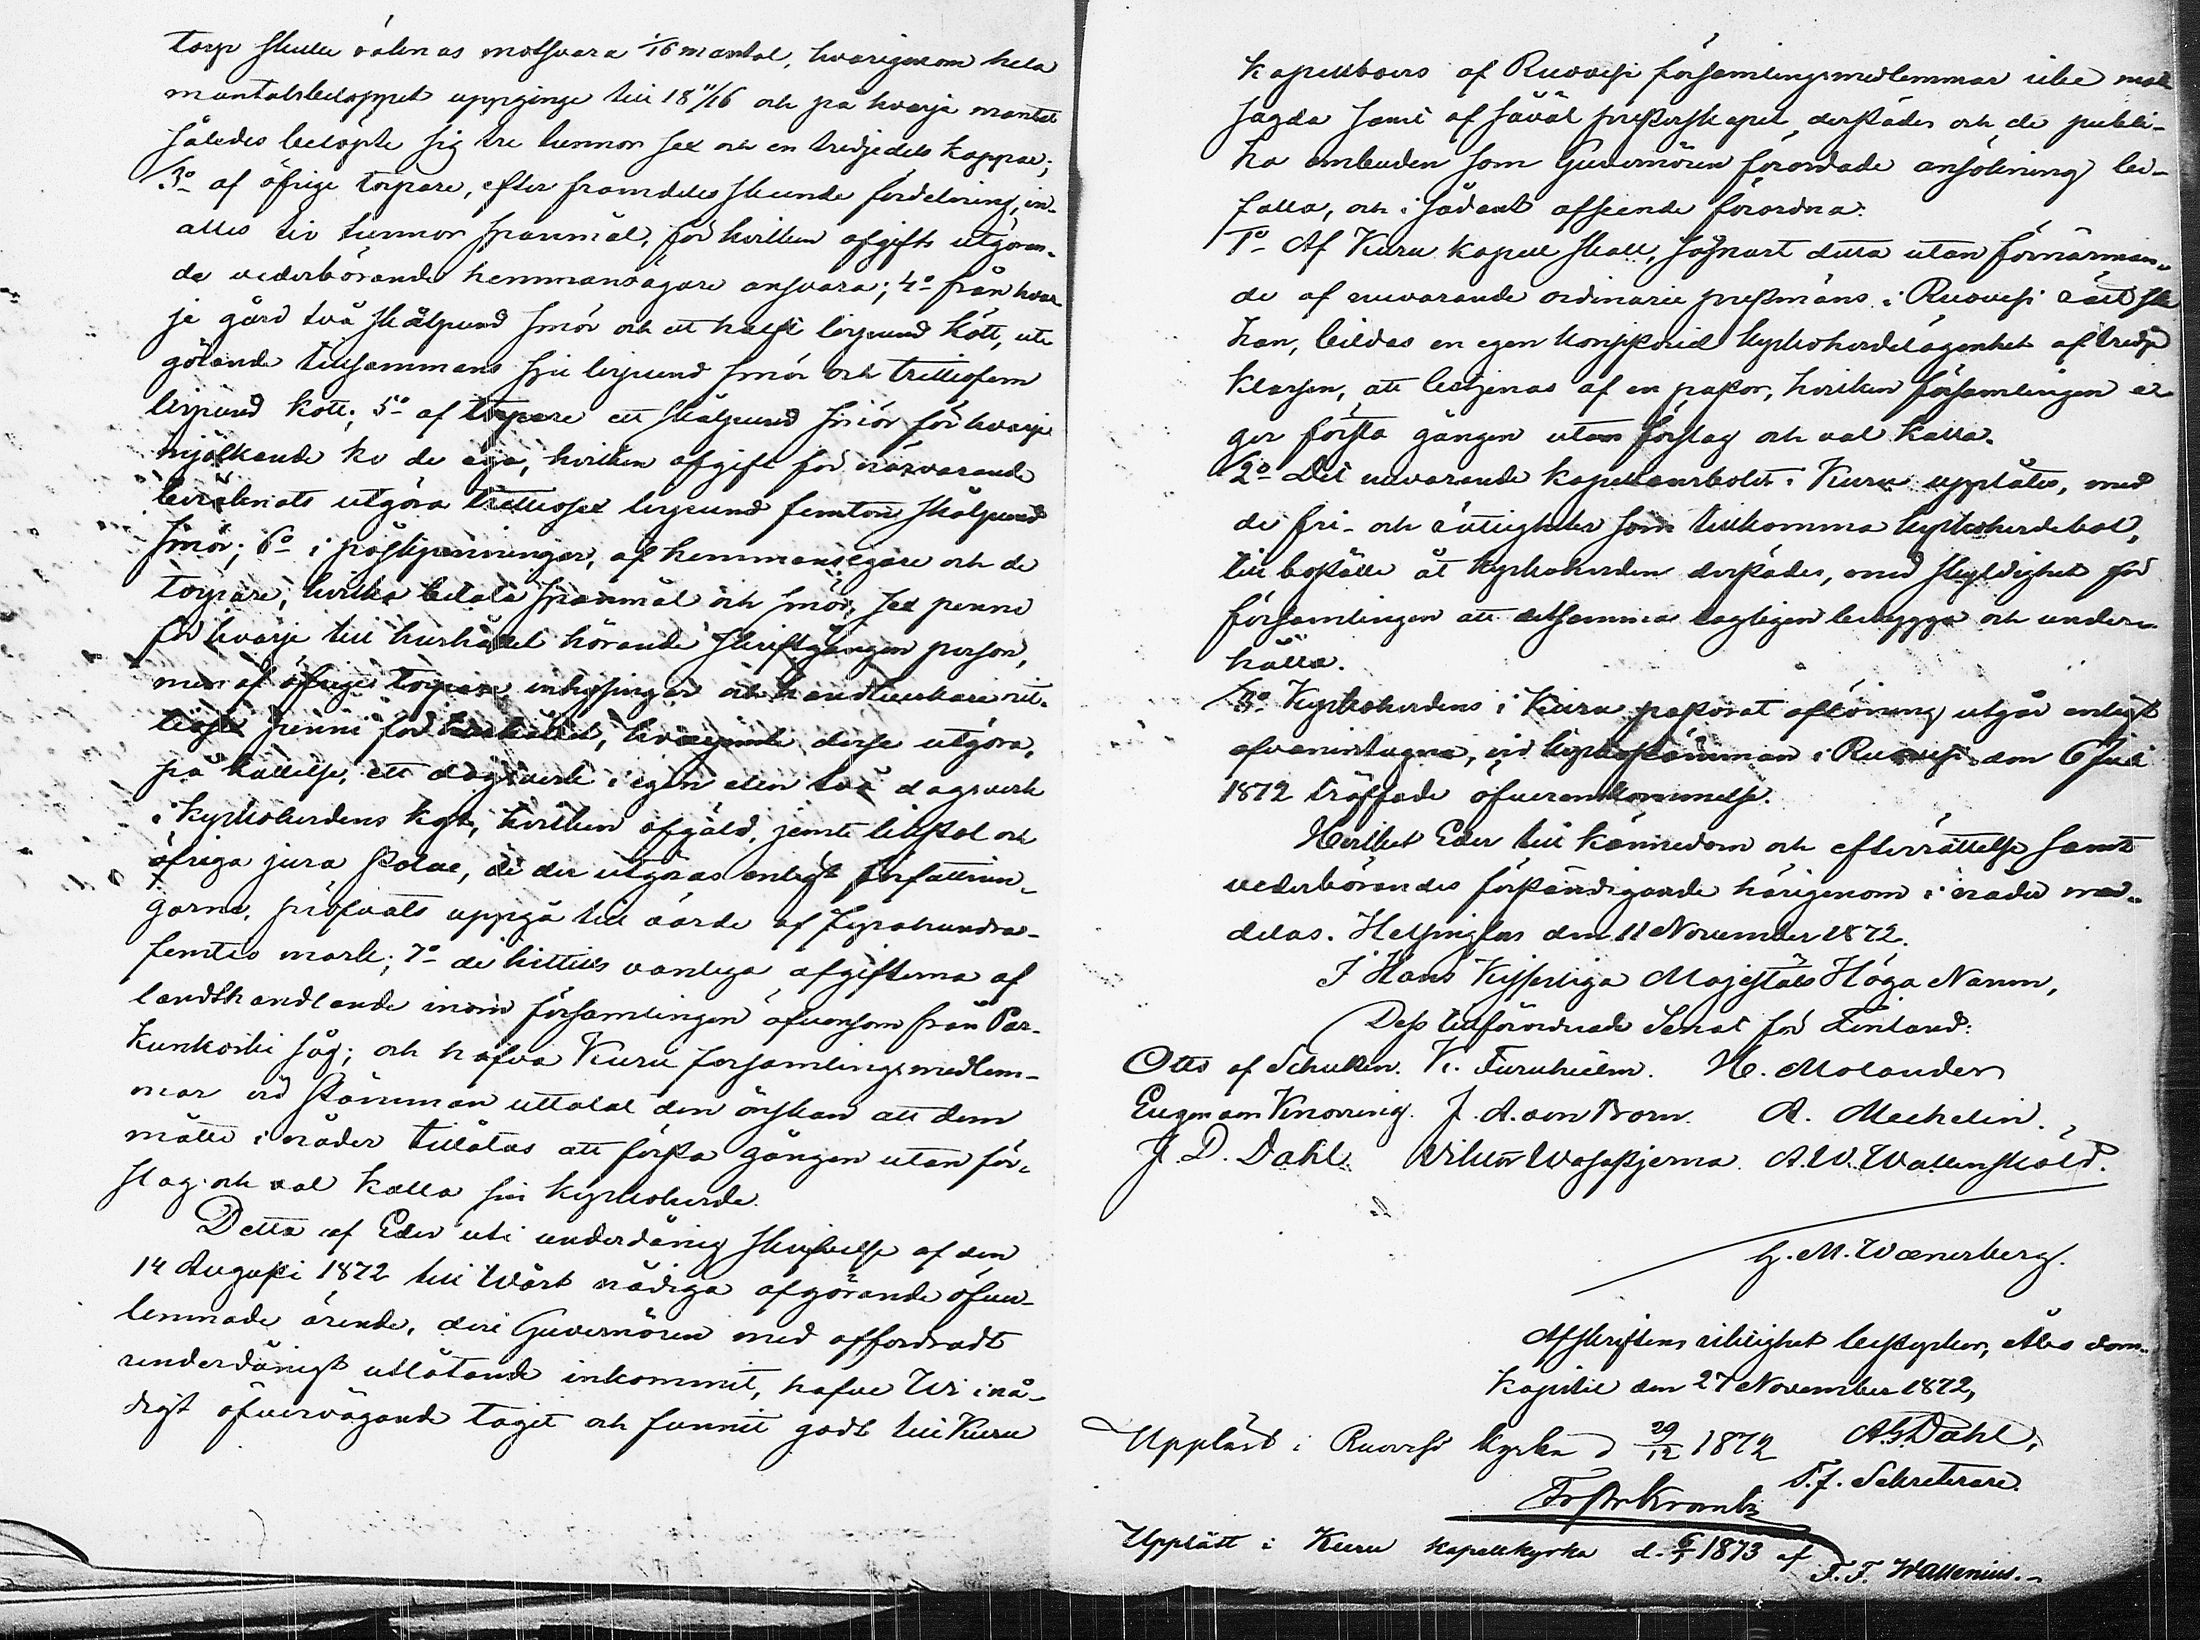 torp skulle räknas motsvara 1/16 mantal, hvarigenom hela
mantalsbeloppet uppginge till 18 11/16 och på hvarje mantal
således belöpte sig tre tunnor sex och en tredjedels kappar;
3o af öfrige torpare, efter framdeles skeende fördelning, in-
alles tio tunnor spanmål, för hvilken afgifts utgöran-
de vederbörande hemmansägare ansvara; 4o från hvar-
je gård två skålpund smör och ett halft lispund kött, ut-
görande tillsammans sju lispund smör och trettiofem
lispund kött; 5o af torpare ett skålpund smör för hvarje
mjölkande ko de äga, hvilken afgift för närvarande
beräknats utgöra trettiosex lispund femton skålpund
smör; 6o i påskpenningar, af hemmansegare och de
torpare, hvilka betala spanmål och smör, sex penni
för hvarje till hushållet hörande skriftgången person,
men af öfrige torpare, inhysingar och handtverkare
penni för hushållet, hvarjemte desse utgöra,
på kallelse, ett dagsverk i egen eller två dagsverk
i kyrkoherdens kost, hvilken afgäld, jemte likstol och
öfriga jura stolae, de der utgöras enligt författnin-
garna, pröfvats uppgå till värde af fyrahundra-
femtio mark; 7o de hittills vanliga afgifterna af
landthandlande inom församlingen äfvensom från Par-
kunkoski såg; och hafva Kuru församlingsmedlem-
mar vid stämman uttalat den önskan att dem
måtte i nåder tillåtas att första gången utan för-
slag och val kalla sin kyrkoherde.
Detta af Eder uti underdånig skrifvelse af den
14 Augusti 1872 till Wårt nådiga afgörande öfver-
lemnade ärende, deri Guvernören med affordradt
underdånigt utlåtande inkommit, hafve Wi i nå-
digt öfvervägande taget och funnit godt till Kuru
kapellboers af Ruovesi församlingsmedlemmar icke mot-
sagda samt af såväl presterskapet derstädes och de publi-
ka ombuden som Guvernören förordade ansökning bi-
falla, och i sådant afseende förordna:
1o Af Kuru kapell skall, såsnart detta utan förnärman-
de af nuvarande ordinarie prestmäns i Ruovesi rätt ske
kan, bildas en egen konsistoriel kyrkoherdelägenhet af tredje
klassen, att betjenas af en pastor, hvilken församlingen e-
ger första gången utan förslag och val kalla.
2o Det nuvarande kapellansbolet i Kuru upplåtes, med
de fri- och rättigheter som tillkomma kyrkoherdebol,
till boställe åt kyrkoherden derstädes, med skyldighet för
församlingen att detsamma lagligen bebygga och under-
hålla.
3o Kyrkoherdens i Kuru pastorat aflöning utgår enligt
ofvanintagna, vid kyrkostämman i Ruovesi den 6 Juli
1872 träffade öfverenskommelse.
Hvilket Eder till kännedom och efterrättelse samt
vederbörandes förständigande härigenom i nåder med-
delas. Helsingfors den 11 November 1872.
I Hans Kejserliga Majestäts Höga Namn,
Dess tillförordnade Senat för Finland:
Otto af Schultén. K. Furuhjelm. H. Molander
Eugen von Knorring. J. A. von Born. A. Mechelin.
J. D. Dahl. Viktor Wasastjerna. A. W. Wallensköld.
G. M. Wænerberg.
Afskriftens riktighet bestyrker, Åbo dom-
kapitel den 27 November 1872,
A. G. Dahl,
T. f. Sekreterare.
Uppläst i Ruovesi kyrka d 29/12 1872
Krank
Uppläst i Kuru kapellkyrka d. 6/1 1873 af
F. F. Wallenius.